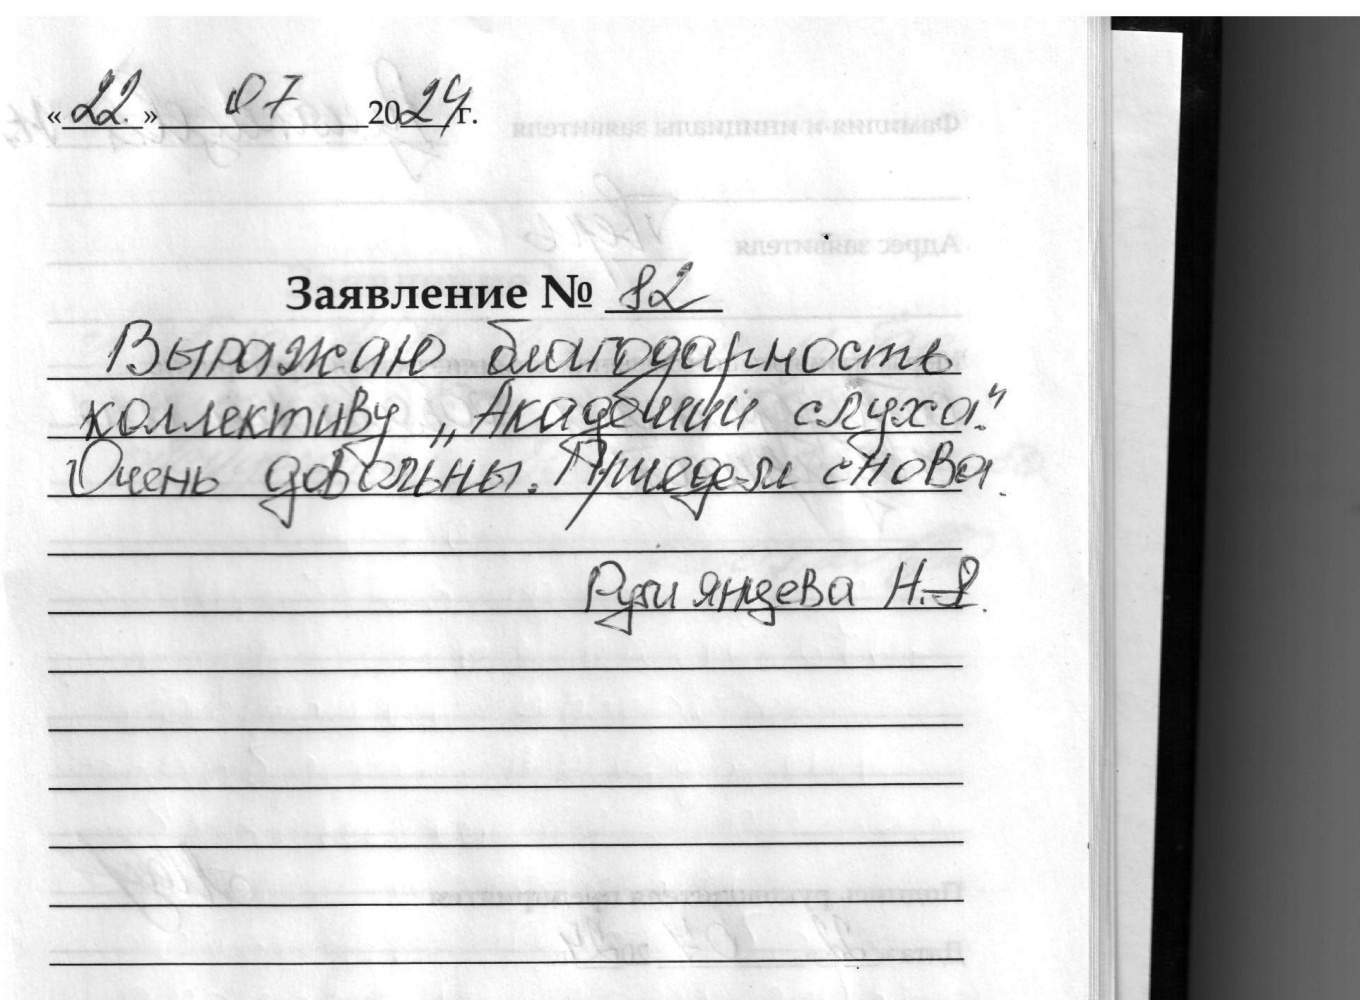 «22.» 07 2024г.
Заявление № 82
Выражаю благодарность
коллективу „Академии слуха".
Очень довольны. Приедем снова.
Н.Я.